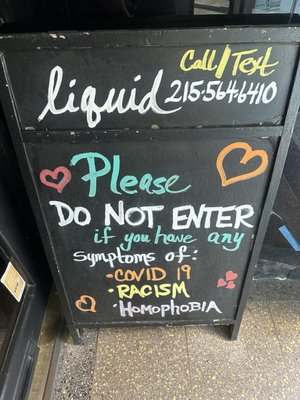 Call/Text
liquid 215·564·6410
Please
DO NOT ENTER
if you have any
symptoms of:
• COVID 19
• RACISM
• HOMOPHOBIA